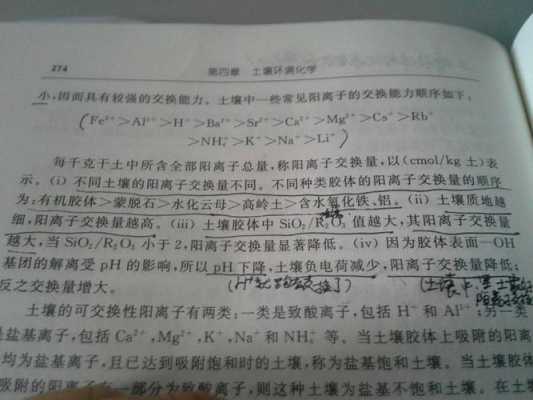 274
第四章 土壤环境化学
小,因而具有较强的交换能力。土壤中一些常见阳离子的交换能力顺序如下:
(Fe³⁺>Al³⁺>H⁺>Ba²⁺>Sr²⁺>Ca²⁺>Mg²⁺>Cs⁺>Rb⁺
>NH₄⁺>K⁺>Na⁺>Li⁺)
每千克干土中所含全部阳离子总量,称阳离子交换量,以(cmol/kg 土)表
示。(i) 不同土壤的阳离子交换量不同。不同种类胶体的阳离子交换量的顺序
为:有机胶体>蒙脱石>水化云母>高岭土>含水氧化铁、铝。(ii) 土壤质地越
细,阳离子交换量越高。(iii) 土壤胶体中 SiO₂/R₂O₃ 值越大,其阳离子交换量
越大,当 SiO₂/R₂O₃ 小于2,阳离子交换量显著降低。(iv) 因为胶体表面—OH
基团的解离受 pH 的影响,所以 pH 下降,土壤负电荷减少,阳离子交换量降低;
反之交换量增大。
土壤的可交换性阳离子有两类:一类是致酸离子,包括 H⁺ 和 Al³⁺;另一类
是盐基离子,包括 Ca²⁺,Mg²⁺,K⁺,Na⁺ 和 NH₄⁺ 等。当土壤胶体上吸附的阳离
均为盐基离子,且已达到吸附饱和时的土壤,称为盐基饱和土壤。当土壤胶体
吸附的阳离子有一部分为致酸离子,则这种土壤为盐基不饱和土壤。在土